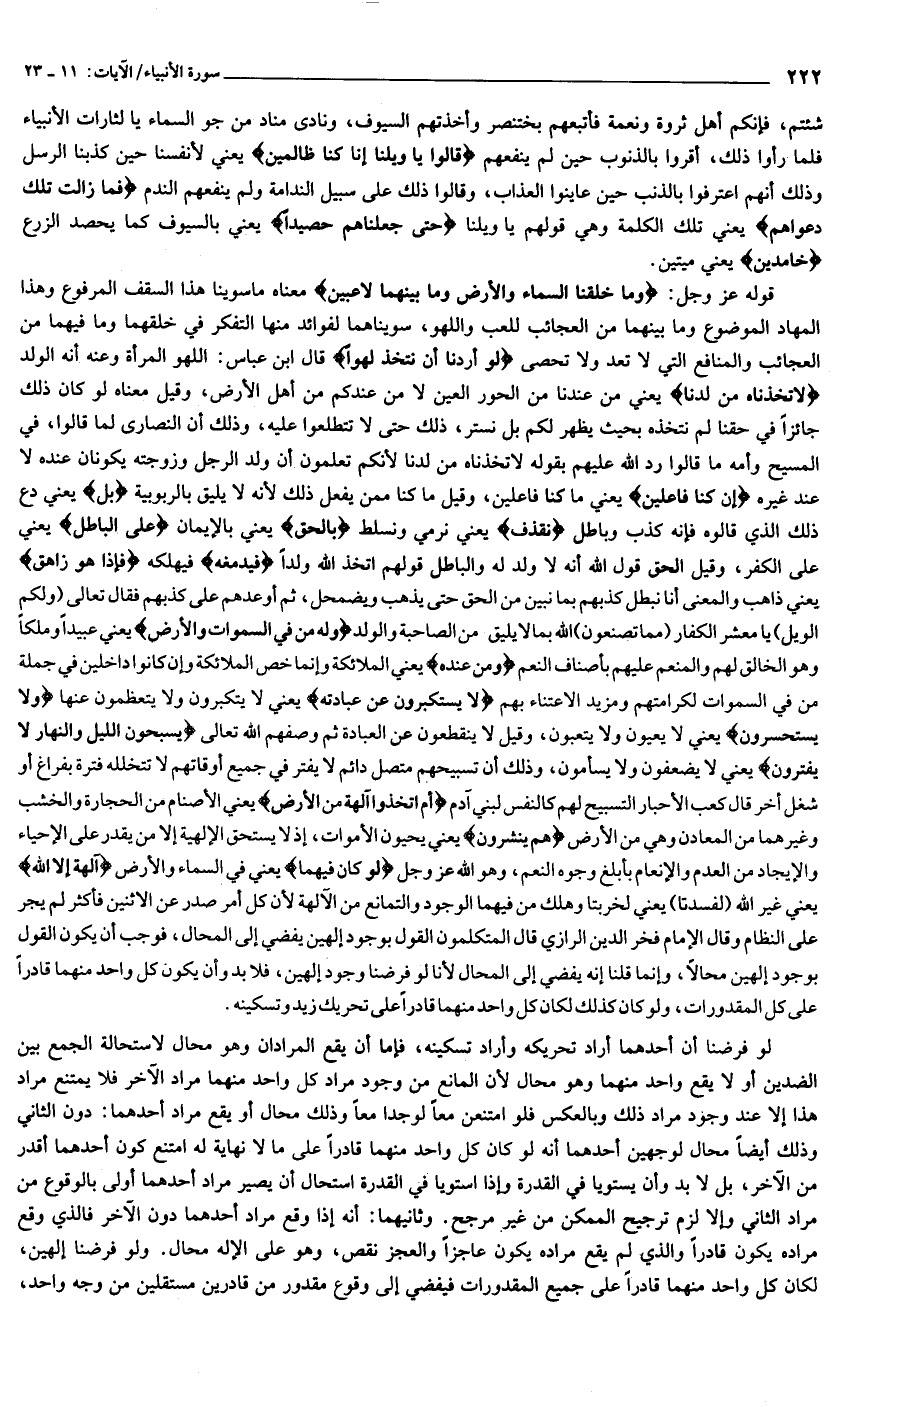 ٢٢٢ سورة الأنبياء/ الآيات: ١١ ـ ٢٣
شئتم، فإنكم أهل ثروة ونعمة فأتبعهم بختنصر وأخذتهم السيوف، ونادى مناد من جو السماء يا لثارات الأنبياء
فلما رأوا ذلك، أقروا بالذنوب حين لم ينفعهم ﴿قالوا يا ويلنا إنا كنا ظالمين﴾ يعني لأنفسنا حين كذبنا الرسل
وذلك أنهم اعترفوا بالذنب حين عاينوا العذاب، وقالوا ذلك على سبيل الندامة ولم ينفعهم الندم ﴿فما زالت تلك
دعواهم﴾ يعني تلك الكلمة وهي قولهم يا ويلنا ﴿حتى جعلناهم حصيداً﴾ يعني بالسيوف كما يحصد الزرع
﴿خامدين﴾ يعني ميتين.
قوله عز وجل: ﴿وما خلقنا السماء والأرض وما بينهما لاعبين﴾ معناه ماسوينا هذا السقف المرفوع وهذا
المهاد الموضوع وما بينهما من العجائب للعب واللهو، سويناهما لفوائد منها التفكر في خلقهما وما فيهما من
العجائب والمنافع التي لا تعد ولا تحصى ﴿لو أردنا أن نتخذ لهواً﴾ قال ابن عباس: اللهو المرأة وعنه أنه الولد
﴿لاتخذناه من لدنا﴾ يعني من عندنا من الحور العين لا من عندكم من أهل الأرض، وقيل معناه لو كان ذلك
جائزاً في حقنا لم نتخذه بحيث يظهر لكم بل نستر، ذلك حتى لا تتطلعوا عليه، وذلك أن النصارى لما قالوا، في
المسيح وأمه ما قالوا رد الله عليهم بقوله لاتخذناه من لدنا لأنكم تعلمون أن ولد الرجل وزوجته يكونان عنده لا
عند غيره ﴿إن كنا فاعلين﴾ يعني ما كنا فاعلين، وقيل ما كنا ممن يفعل ذلك لأنه لا يليق بالربوبية ﴿بل﴾ يعني دع
ذلك الذي قالوه فإنه كذب وباطل ﴿نقذف﴾ يعني نرمي ونسلط ﴿بالحق﴾ يعني بالإيمان ﴿على الباطل﴾ يعني
على الكفر، وقيل الحق قول الله أنه لا ولد له والباطل قولهم اتخذ الله ولداً ﴿فيدمغه﴾ فيهلكه ﴿فإذا هو زاهق﴾
يعني ذاهب والمعنى أنا نبطل كذبهم بما نبين من الحق حتى يذهب ويضمحل، ثم أوعدهم على كذبهم فقال تعالى (ولكم
الويل) يا معشر الكفار (مما تصنعون) الله بما لا يليق من الصاحبة والولد ﴿وله من في السموات والأرض﴾ يعني عبيداً وملكاً
وهو الخالق لهم والمنعم عليهم بأصناف النعم ﴿ومن عنده﴾ يعني الملائكة وإنما خص الملائكة وإن كانوا داخلين في جملة
من في السموات لكرامتهم ومزيد الاعتناء بهم ﴿لا يستكبرون عن عبادته﴾ يعني لا يتكبرون ولا يتعظمون عنها ﴿ولا
يستحسرون﴾ يعني لا يعيون ولا يتعبون، وقيل لا ينقطعون عن العبادة ثم وصفهم الله تعالى ﴿يسبحون الليل والنهار لا
يفترون﴾ يعني لا يضعفون ولا يسأمون، وذلك أن تسبيحهم متصل دائم لا يفتر في جميع أوقاتهم لا تتخلله فترة بفراغ أو
شغل أخر قال كعب الأحبار التسبيح لهم كالنفس لبني آدم ﴿أم اتخذوا آلهة من الأرض﴾ يعني الأصنام من الحجارة والخشب
وغيرهما من المعادن وهي من الأرض ﴿هم ينشرون﴾ يعني يحيون الأموات، إذ لا يستحق الإلهية إلا من يقدر على الإحياء
والإيجاد من العدم والإنعام بأبلغ وجوه النعم، وهو الله عز وجل ﴿لو كان فيهما﴾ يعني في السماء والأرض ﴿آلهة إلا الله﴾
يعني غير الله (لفسدتا) يعني لخربتا وهلك من فيهما الوجود والتمانع من الآلهة لأن كل أمر صدر عن الاثنين فأكثر لم يجر
على النظام وقال الإمام فخر الدين الرازي قال المتكلمون القول بوجود إلهين يفضي إلى المحال، فوجب أن يكون القول
بوجود إلهين محالاً، وإنما قلنا إنه يفضي إلى المحال لأنا لو فرضنا وجود إلهين، فلا بد وأن يكون كل واحد منهما قادراً
على كل المقدورات، ولو كان كذلك لكان كل واحد منهما قادراً على تحريك زيد وتسكينه.
لو فرضنا أن أحدهما أراد تحريكه وأراد تسكينه، فإما أن يقع المرادان وهو محال لاستحالة الجمع بين
الضدين أو لا يقع واحد منهما وهو محال لأن المانع من وجود مراد كل واحد منهما مراد الآخر فلا يمتنع مراد
هذا إلا عند وجود مراد ذلك وبالعكس فلو امتنعن معاً لوجدا معاً وذلك محال أو يقع مراد أحدهما: دون الثاني
وذلك أيضاً محال لوجهين أحدهما أنه لو كان كل واحد منهما قادراً على ما لا نهاية له امتنع كون أحدهما أقدر
من الآخر، بل لا بد وأن يستويا في القدرة وإذا استويا في القدرة استحال أن يصير مراد أحدهما أولى بالوقوع من
مراد الثاني وإلا لزم ترجيح الممكن من غير مرجح. وثانيهما: أنه إذا وقع مراد أحدهما دون الآخر فالذي وقع
مراده يكون قادراً والذي لم يقع مراده يكون عاجزاً والعجز نقص، وهو على الإله محال. ولو فرضنا إلهين،
لكان كل واحد منهما قادراً على جميع المقدورات فيفضي إلى وقوع مقدور من قادرين مستقلين من وجه واحد،